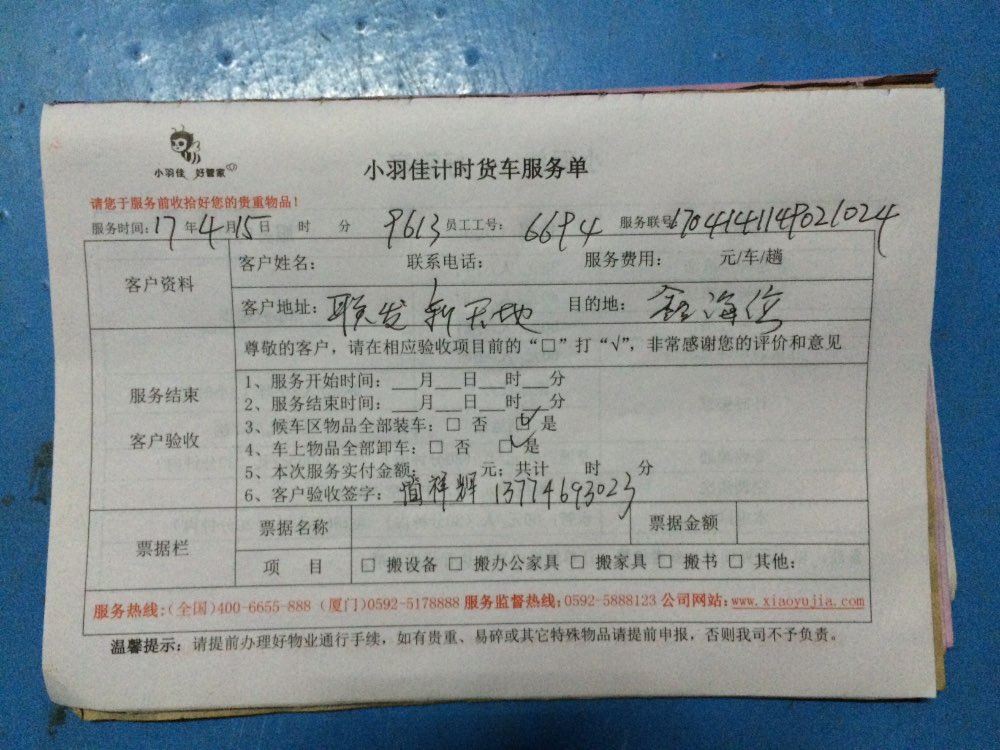 小羽佳 好管家
小羽佳计时货车服务单
请您于服务前收拾好您的贵重物品！
服务时间：17年4月15日 时 分 9613 员工工号：6694 服务联号：1704141149021024
客户资料
客户姓名： 联系电话： 服务费用： 元/车/趟
客户地址：联发新天地 目的地：
尊敬的客户，请在相应验收项目前的“□”打“√”，非常感谢您的评价和意见
服务结束
客户验收
1、服务开始时间：___月___日___时___分
2、服务结束时间：___月___日___时___分
3、候车区物品全部装车：□ 否 ☑ 是
4、车上物品全部卸车：□ 否 ☑ 是
5、本次服务实付金额： 元；共计 时 分
6、客户验收签字：简祥辉 13774693023
票据栏
票据名称 票据金额
项 目 □ 搬设备 □ 搬办公家具 □ 搬家具 □ 搬书 □ 其他：
服务热线：（全国）400-6655-888（厦门）0592-5178888 服务监督热线：0592-5888123 公司网站：www.xiaoyujia.com
温馨提示：请提前办理好物业通行手续，如有贵重、易碎或其它特殊物品请提前申报，否则我司不予负责。